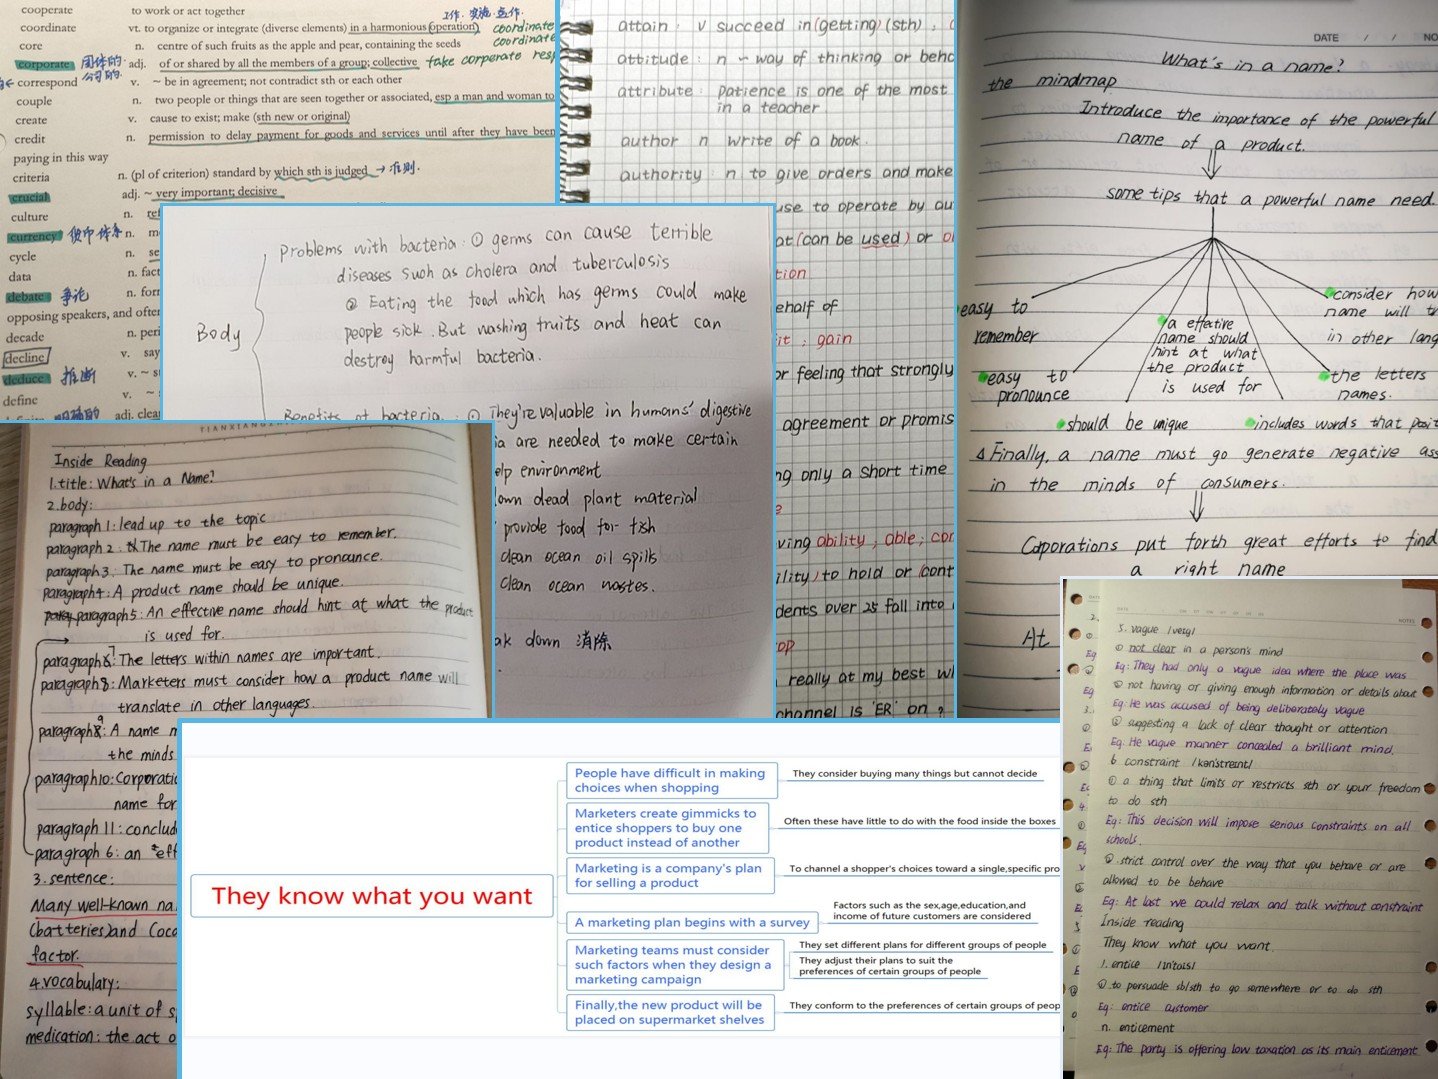 cooperate to work or act together
工作. 实施. 运作.
coordinate vt. to organize or integrate (diverse elements) in a harmonious (operation) coordinate
core n. centre of such fruits as the apple and pear, containing the seeds coordinate
corporate 团体的. 公司的. adj. of or shared by all the members of a group; collective take corporate resp
correspond v. ~ be in agreement; not contradict sth or each other
couple n. two people or things that are seen together or associated, esp a man and woman to
create v. cause to exist; make (sth new or original)
credit n. permission to delay payment for goods and services until after they have been
paying in this way
criteria n. (pl of criterion) standard by which sth is judged → 准则.
crucial adj. ~ very important; decisive
culture n. ref
currency 货币体系 n. m
cycle n. se
data n. fact
debate 争论 n. for
opposing speakers, and often
decade n. peri
decline v. say
deduce 推断 v. ~ s
define v. ~
明确的 adj. clea
attain : v succeed in (getting) (sth) ,
attitude : n ~ way of thinking or beha
attribute : patience is one of the most
in a teacher
author n write of a book.
authority n to give orders and make
use to operate by au
at (can be used) or o
tion
ehalf of
it , gain
or feeling that strongly
agreement or promis
ng only a short time
ving ability , able , con
ility) to hold or (cont
dents over 25 fall into
op
really at my best wh
channel is 'ER' on ?
DATE / / NO
What's in a name?
the mindmap
Introduce the importance of the powerful
name of a product.
some tips that a powerful name need.
easy to
remember
easy to
pronounce
should be unique
a effective
name should
hint at what
the product
is used for
includes words that posit
consider how
name will tr
in other lang
the letters
names.
Δ Finally, a name must go generate negative ass
in the minds of consumers.
Coporations put forth great efforts to find
a right name
At
Body
problems with bacteria : ① germs can cause terrible
diseases such as cholera and tuberculosis
② Eating the food which has germs could make
people sick . But washing fruits and heat can
destroy harmful bacteria.
Benefits of bacteria : ① They're valuable in humans' digestive
ia are needed to make certain
elp environment
own dead plant material
provide food for fish
clean ocean oil spills
clean ocean wastes.
ak down 消除
Inside Reading
1. title: What's in a Name?
2. body:
paragraph 1: lead up to the topic
paragraph 2: The name must be easy to remember.
paragraph 3: The name must be easy to pronance.
paragraph 4: A product name should be unique.
paragraph 5: An effective name should hint at what the product
is used for.
paragraph 7: The letters within names are important.
paragraph 8: Marketers must consider how a product name will
translate in other languages.
paragraph 9: A name m
the minds
paragraph 10: Corporatio
name for
paragraph 11: conclud
paragraph 6: an "eff
3. sentence:
Many well-known na
(batteries) and Coca
factor.
4. vocabulary:
syllable: a unit of s
medication: the act o
They know what you want
People have difficult in making
choices when shopping
They consider buying many things but cannot decide
Marketers create gimmicks to
entice shoppers to buy one
product instead of another
Often these have little to do with the food inside the boxes
Marketing is a company's plan
for selling a product
To channel a shopper's choices toward a single,specific pro
A marketing plan begins with a survey
Factors such as the sex,age,education,and
income of future customers are considered
Marketing teams must consider
such factors when they design a
marketing campaign
They set different plans for different groups of people
They adjust their plans to suit the
preferences of certain groups of people
Finally,the new product will be
placed on supermarket shelves
They conform to the preferences of certain groups of peop
DATE
NOTES
5. vague /veɪg/
① not clear in a person's mind
Eg: They had only a vague idea where the place was
② not having or giving enough information or details about
Eg: He was accused of being deliberately vague
③ suggesting a lack of clear thought or attention
Eg: He vague manner concealed a brilliant mind.
6 constraint /kənˈstreɪnt/
① a thing that limits or restricts sth or your freedom
to do sth
Eg: This decision will impose serious constraints on all
schools.
② strict control over the way that you behave or are
allowed to be behave
Eg: At last we could relax and talk without constraint
Inside reading
They know what you want.
1. entice /ɪnˈtaɪs/
① to persuade sb/sth to go somewhere or to do sth
Eg: entice customer
n. enticement
Eg: The party is offering low taxation as its main enticement